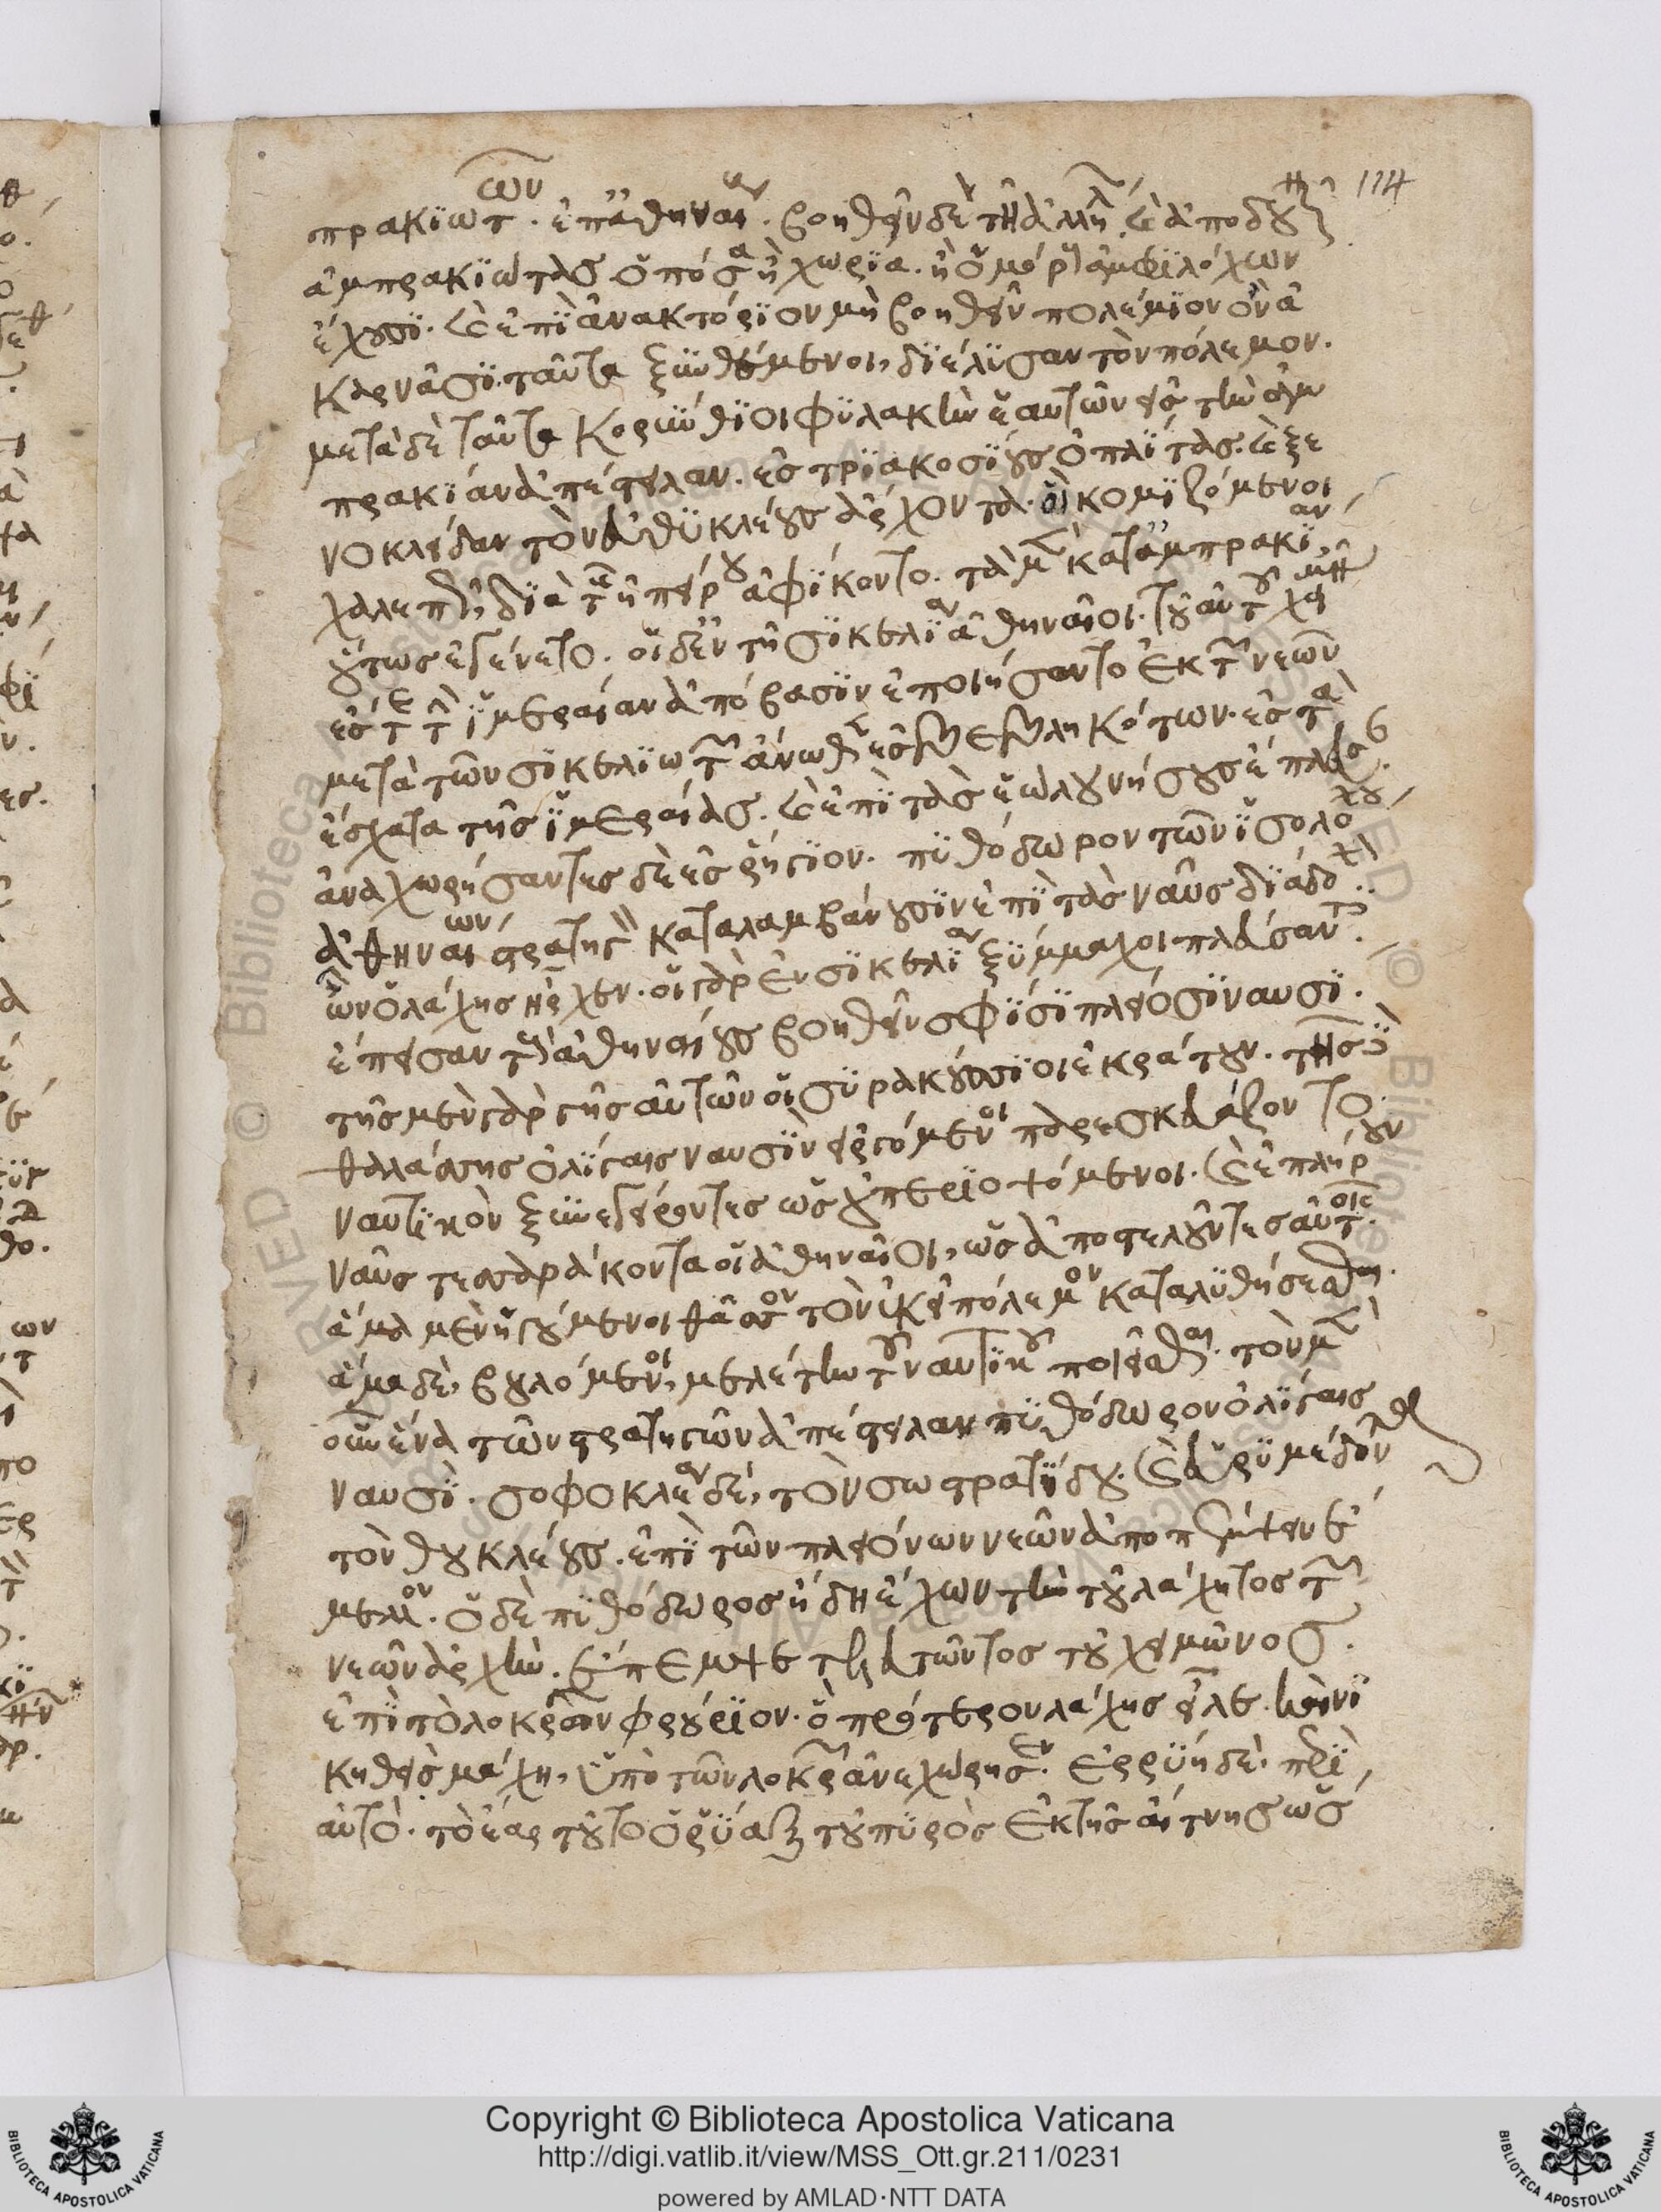 114
πρακιωτῶν. ἐπ' ἀθηναίους. βοηθεῖν δὲ τῆ ἀλλήλων. καὶ ἀποδοῦναι
ἀμπρακιώτας ὁπόσα ἢ χωρία. ἢ ὁμήρους ἀμφιλόχων
ἔχουσι. καὶ ἐπὶ ἀνακτόριον μὴ βοηθεῖν πολέμιον ὂν ἀ
καρνᾶσι. ταῦτα ξυνθέμενοι, διέλυσαν τὸν πόλεμον.
μετὰ δὲ ταῦτα κορίνθιοι φυλακὴν ἑαυτῶν εἰς τὴν ἀμ
πρακίαν ἀπέστειλαν. ἐς τριακοσίους ὁπλίτας. καὶ ξε
νοκλείδαν τὸν εὐθυκλέους ἄρχοντα. οἳ κομιζόμενοι
χαλεπῶς διὰ τῆς ἠπείρου ἀφίκοντο. τὰ μὲν κατ' ἀμπρακίαν
οὕτως ἐγένετο. οἱ δ' ἐν τῆ σικελία ἀθηναῖοι. τοῦ αὐτοῦ χει
ἔς τε τὴν ἱμεραίαν ἀπόβασιν ἐποιήσαντο ἐκ τῶν νεῶν
μετὰ τῶν σικελιωτῶν ἄνωθεν ἐσβεβληκότων. ἐς τὰ
ἔσχατα τῆς ἱμεραίας. καὶ ἐπὶ τὰς αἰόλου νήσους ἔπλευσαν.
ἀναχωρήσαντες δὲ ἐς ῥήγιον. πυθόδωρον τὸν ἰσολόχου
ἀθηναίων στρατηγὸν καταλαμβάνουσιν ἐπὶ τὰς ναῦς διάδοχον
ὧν ὁ λάχης ἦρχεν. οἱ γὰρ ἐν σικελία ξύμμαχοι πλεύσαντες
ἔπεισαν τοὺς ἀθηναίους βοηθεῖν σφίσι πλείοσι ναυσί.
τῆς μὲν γὰρ γῆς αὐτῶν οἱ συρακούσιοι ἐκράτουν. τῆς δὲ
θαλάσσης ὀλίγαις ναυσὶν εἰργόμενοι παρεσκευάζοντο
ναυτικὸν ξυναγείροντες ὡς οὐ περιοψόμενοι. καὶ ἐπλήρουν
ναῦς τεσσαράκοντα οἱ ἀθηναῖοι, ὡς ἀποστελοῦντες αὐτοῖς.
ἅμα μὲν ἡγούμενοι θᾶσσον τὸν ἐκεῖ πόλεμον καταλυθήσεσθαι.
ἅμα δὲ, βουλόμενοι, μελέτην τοῦ ναυτικοῦ ποιεῖσθαι. τὸν μὲν
οὖν ἕνα τῶν στρατηγῶν ἀπέστειλαν πυθόδωρον ὀλίγαις
ναυσί. σοφοκλέα δὲ, τὸν σωστρατίδου. καὶ εὐρυμέδοντα
τὸν θουκλέους. ἐπὶ τῶν πλειόνων νεῶν ἀποπέμψειν ἔ
μελλον. ὁ δὲ πυθόδωρος ἤδη ἔχων τὴν τοῦ λάχητος τῶν
νεῶν ἀρχὴν. ἔπεμψε τελευτῶντος τοῦ χειμῶνος.
ἐπὶ τὸ λοκρῶν φρούριον. ὃ πρότερον λάχης εἷλε. καὶ νι
κηθεὶς μάχη, ὑπὸ τῶν λοκρῶν ἀνεχώρησεν. ἐρρύη δὲ περὶ
αὐτὸ. τὸ ἔαρ τοῦτο ὁ ῥύαξ τοῦ πυρὸς ἐκ τῆς αἴτνης ὡς
Copyright © Biblioteca Apostolica Vaticana
http://digi.vatlib.it/view/MSS_Ott.gr.211/0231
powered by AMLAD·NTT DATA